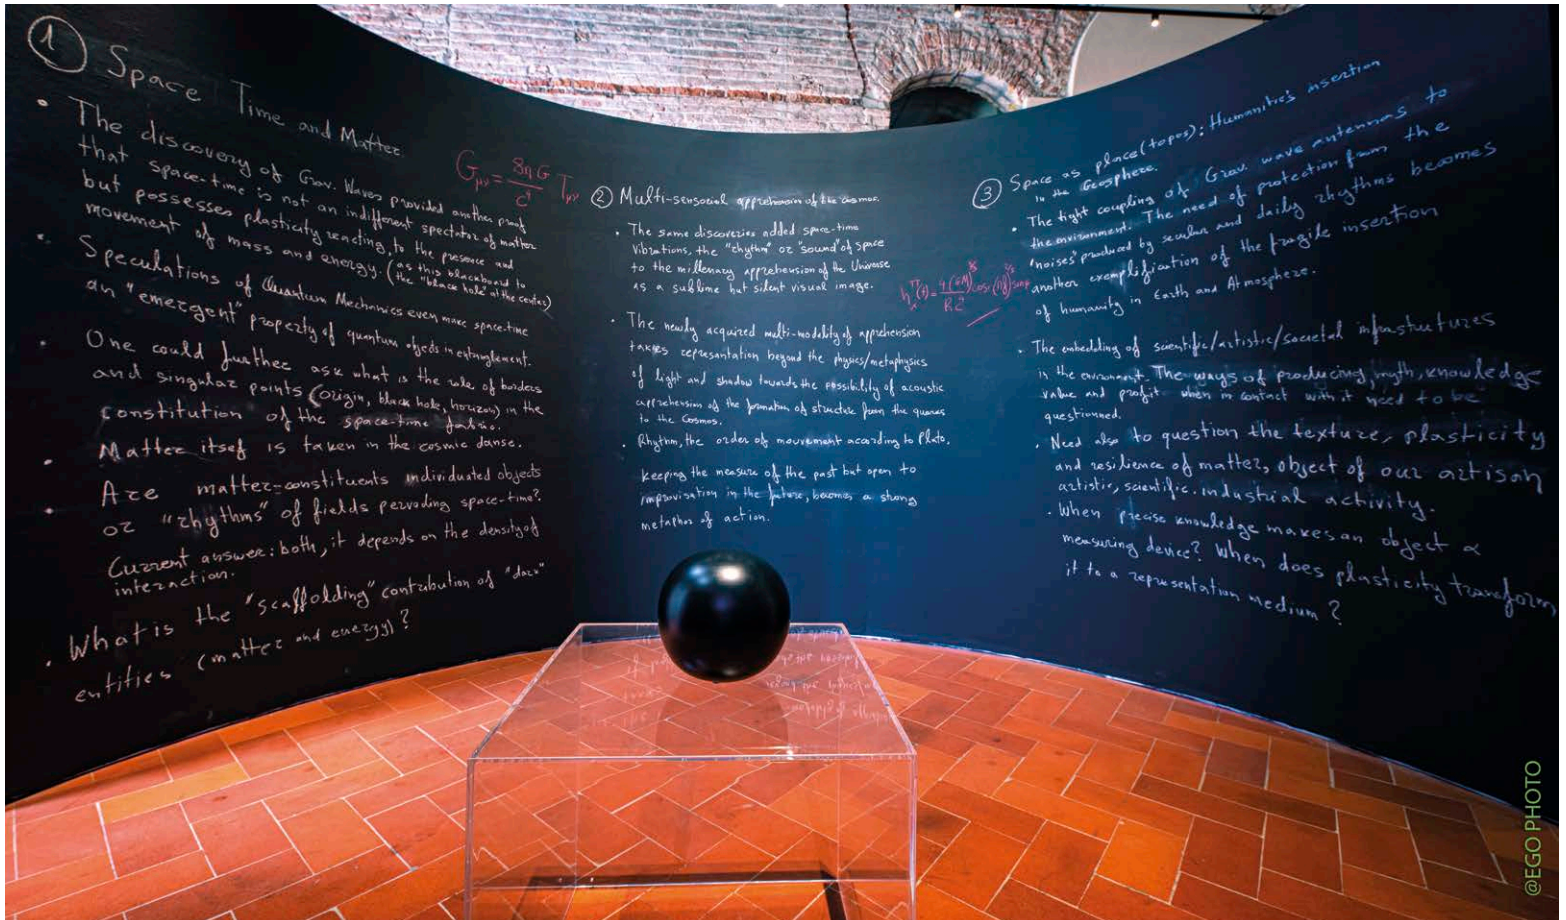 1 Space Time and Matter
• The discovery of Grav. Waves provided another proof
that space-time is not an indifferent spectator of matter
but possesses plasticity reacting to the presence and
movement of mass and energy. (as this blackboard to
the "black hole" at the center)
• Speculations of Quantum Mechanics even make space-time
an "emergent" property of quantum objects in entanglement.
• One could further ask what is the role of borders
and singular points (origin, black hole, horizon) in the
constitution of the space-time fabric.
• Matter itself is taken in the cosmic danse.
• Are matter-constituents individuated objects
or "rhythms" of fields pervading space-time?
Current answer: both, it depends on the density of
interaction.
• What is the "scaffolding" contribution of "dark"
entities (matter and energy)?
Gμν = 8πG/c⁴ Tμν
2 Multi-sensorial apprehension of the cosmos
• The same discoveries added space-time
vibrations, the "rhythm" or "sound" of space
to the millenary apprehension of the Universe
as a sublime but silent visual image.
• The newly acquired multi-modality of apprehension
takes representation beyond the physics/metaphysics
of light and shadow towards the possibility of acoustic
apprehension of the formation of structure from the quarks
to the Cosmos.
• Rhythm, the order of mouvement according to Plato,
keeping the measure of the past but open to
improvisation in the future, becomes a strong
metaphor of action.
3 Space as place (topos): Humanities insertion
in the Geosphere.
• The tight coupling of Grav. wave antennas to
the environment. The need of protection from the
"noises" produced by secular and daily rhythms becomes
another exemplification of the fragile insertion
of humanity in Earth and Atmosphere.
• The embedding of scientific/artistic/societal infrastructures
in the environment The ways of producing, myth, knowledge
value and profit when in contact with it need to be
questionned.
• Need also to question the texture, plasticity
and resilience of matter, object of our artisan
artistic, scientific, industrial activity.
• When precise knowledge makes an object a
measuring device? When does plasticity transform
it to a representation medium?
@EGO PHOTO